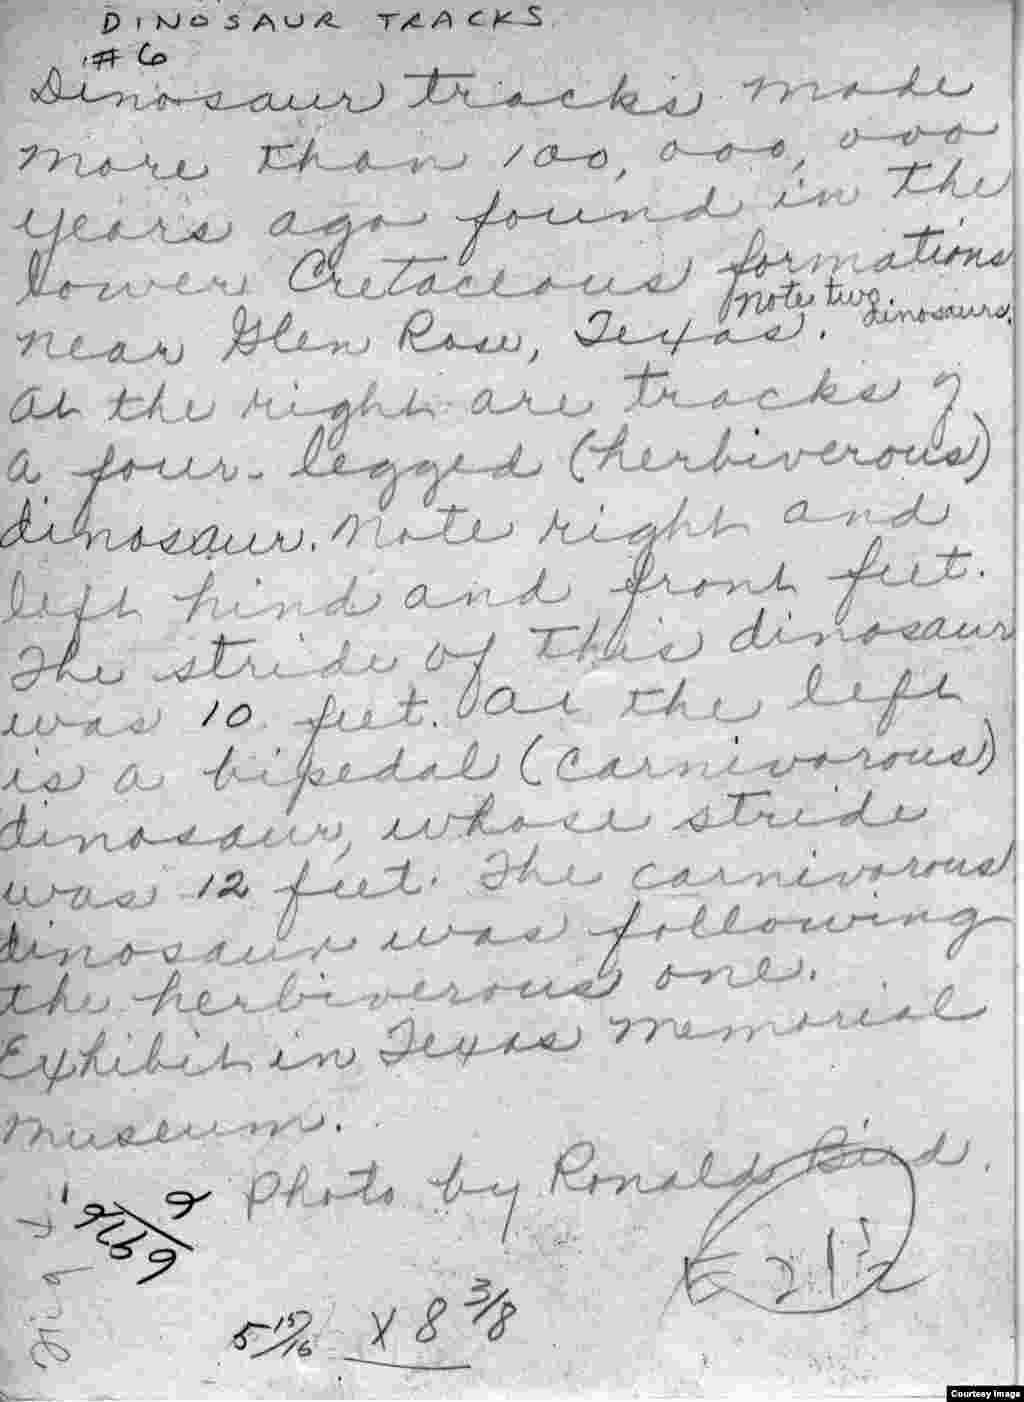 DINOSAUR TRACKS
#6
Dinosaur tracks made
more than 100,000,000
years ago found in the
lower Cretaceous formations
near Glen Rose, Texas. Note two dinosaurs.
At the right are tracks of
a four-legged (herbiverous)
dinosaur. Note right and
left hind and front feet.
The stride of this dinosaur
was 10 feet. At the left
is a bipedal (carnivorous)
dinosaur, whose stride
was 12 feet. The carnivorous
dinosaur was following
the herbiverous one.
Exhibit in Texas Memorial
Museum.
Photo by Ronald Bird.
21½
5 15/16 X 8 3/8
Courtesy Image